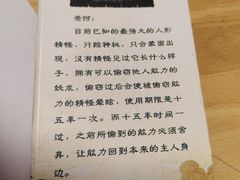 奈何:
目前已知的最强大的人形
精怪,行踪神秘,只会蒙面出
现,没有精怪见过它长什么样
子,拥有可以偷窃他人能力的
妖术,偷窃过后会使被偷窃能
力的精怪晕暗,使用期限是十
五年一次。而十五年时间一
过,之前所偷到的能力必须舍
弃,让能力回到本来的主人身
边。